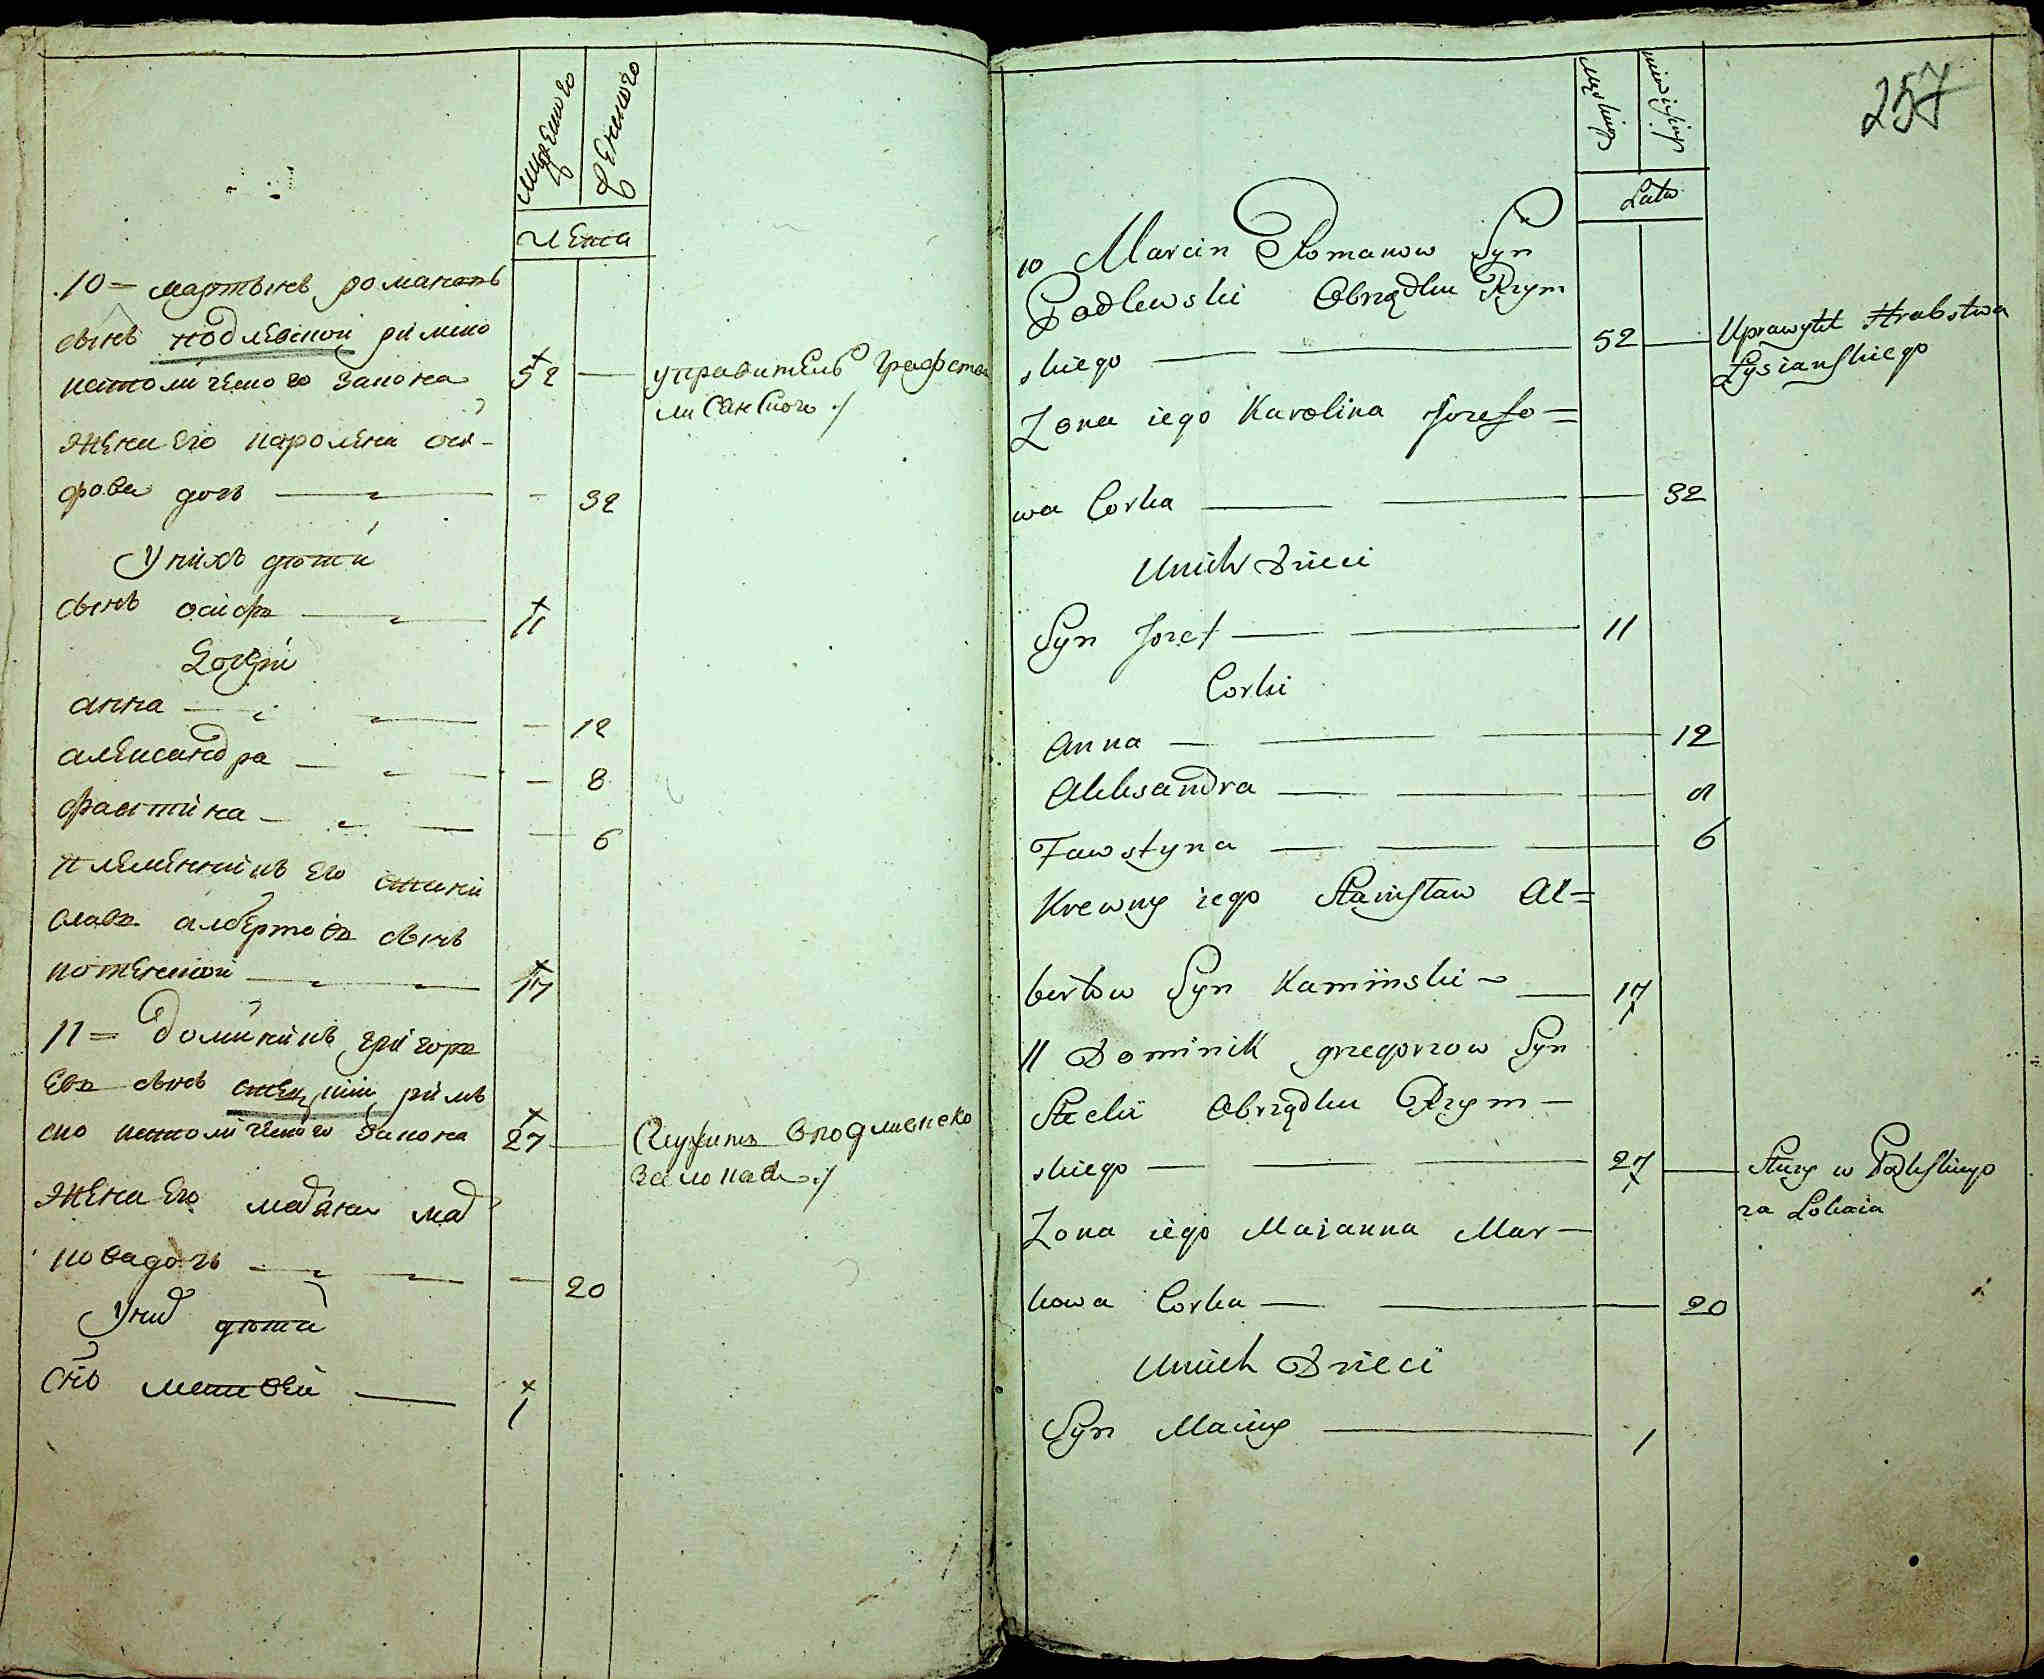 мужеского
женского
лета
10 = мартынъ романовъ
сынъ подлевской римско
католического закона 52 — управитель графства
лисянского ./
жена его каролина оси-
фова дочь — - 32
У нихъ дѣти
сынъ осифъ — 11
Дочери
анна — - 12
александра — - 8
фаустина — - 6
племенникъ его стани
славъ албертовъ сынъ
17
11 = доминикъ григорь
евъ сынъ римъ
ско католического закона 27 — Служитъ
за локая ./
жена его мариана мар
кова дочь — - 20
У них дѣти
снъ матвей — 1
257
Męskiego
Lata
10 Marcin Romanow Syn
Podlewski Obrządku Rzym
skiego — 52 — Uprawytel Hrabstwa
Łysianskiego
Zona iego Karolina Jozefo=
wa Corka — 32
Unich Dzieci
Syn Jozef — 11
Corki
Anna — 12
Aleksandra — 8
Fawstyna — 6
Krewny iego Stanisław Al=
bertow Syn Kaminski — 17
11 Dominik grzegorzow Syn
Stecki Obrządku Rzym —
skiego — 27 — Służy w
za Lokaia
Zona iego Maianna Mar —
kowa Corka — 20
Unich Dzieci
Syn Maciey — 1